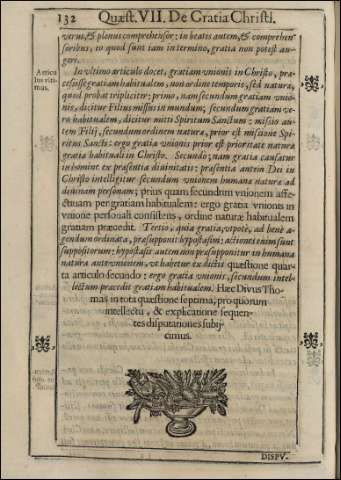 132 Quæst. VII. De Gratia Christi.
verus, & plenus comprehensor: in beatis autem, & comprehen-
soribus, eo quod sunt iam in termino, gratia non potest au-
geri.
Articu
lus vlti-
mus.
In vltimo articulo docet, gratiam vnionis in Christo, præ-
cessisse gratiam habitualem, non ordine temporis, sed natura,
quod probat tripliciter: primo, nam secundum gratiam vnio-
nis, dicitur Filius missus in mundum; secundum gratiam ve-
ro habitualem, dicitur mitti Spiritum Sanctum: missio au-
tem Filij, secundum ordinem natura, prior est missione Spi-
ritus Sancti: ergo gratia vnionis prior est prioritate natura
gratia habituali in Christo. Secundo; nam gratia causatur
in homine ex præsentia diuinitatis: præsentia autem Dei in
Christo intelligitur secundum vnionem humana natura ad
diuinam personam; prius quam secundum vnionem affe-
ctiuam per gratiam habitualem: ergo gratia vnionis in
vnione personali consistens, ordine naturæ habitualem
gratiam præcedit. Tertio, quia gratia, vtpotè, ad benè a-
gendum ordinata, præsupponit hypostasim; actiones enim sunt
suppositorum; hypostasis autem non præsupponitur in humana
natura ante vnionem, vt habetur ex dictis quæstione quar-
ta articulo secundo; ergo gratia vnionis, secundum intel-
lectum præcedit gratiam habitualem. Hæc Diuus Tho-
mas in tota quæstione septima, pro quorum
intellectu, & explicatione sequen-
tes disputationes subij-
cimus.
DISPV-